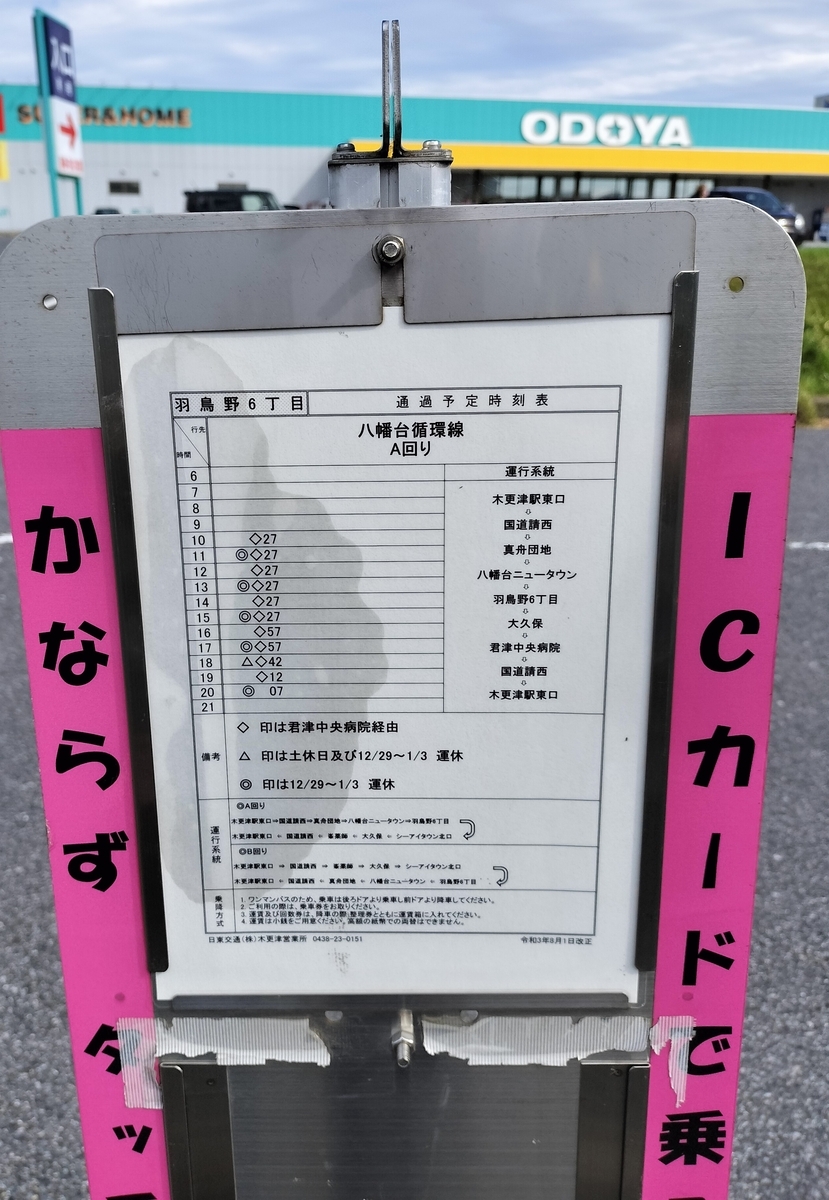 入口
SUPER&HOME
ODOYA
羽鳥野6丁目
通過予定時刻表
行先
時間
八幡台循環線
A回り
運行系統
6
7
8
9
10 ◇27
11 ◎◇27
12 ◇27
13 ◎◇27
14 ◇27
15 ◎◇27
16 ◇57
17 ◎◇57
18 △◇42
19 ◇12
20 ◎ 07
21
木更津駅東口
⇩
国道請西
⇩
真舟団地
⇩
八幡台ニュータウン
⇩
羽鳥野6丁目
⇩
大久保
⇩
君津中央病院
⇩
国道請西
⇩
木更津駅東口
備考
◇ 印は君津中央病院経由
△ 印は土休日及び12/29~1/3 運休
◎ 印は12/29~1/3 運休
運行系統
◎A回り
木更津駅東口⇒国道請西⇒真舟団地⇒八幡台ニュータウン⇒羽鳥野6丁目
木更津駅東口 ← 国道請西 ← 峯薬師 ← 大久保 ← シーアイタウン北口
◎B回り
木更津駅東口 ⇒ 国道請西 ⇒ 峯薬師 ⇒ 大久保 ⇒ シーアイタウン北口
木更津駅東口 ← 国道請西 ← 真舟団地 ← 八幡台ニュータウン ← 羽鳥野6丁目
乗降方式
1. ワンマンバスのため、乗車は後ろドアより乗車し前ドアより降車してください。
2. ご利用の際は、乗車券をお取りください。
3. 運賃及び回数券は、降車の際、整理券とともに運賃箱に入れてください。
4. 運賃は小銭をご用意ください。高額の紙幣での両替はできません。
日東交通(株)木更津営業所 0438-23-0151
令和3年8月1日改正
ICカードで乗
かならずタッ